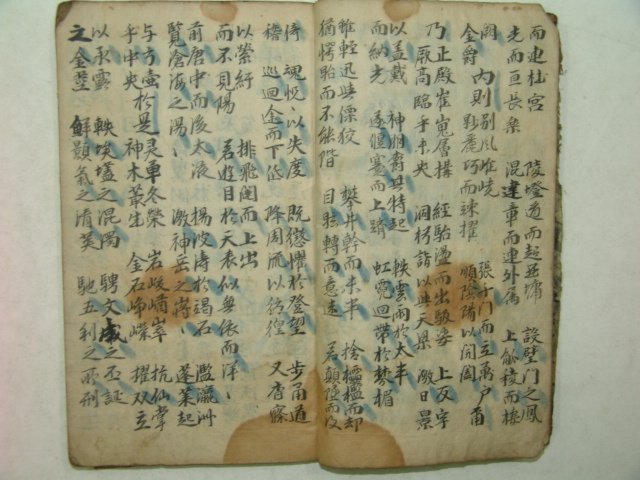 而建桂宮 陵墱道而超西墉 設壁門之鳳
光而亘長樂 混建章而連外属 上觚稜而棲
闕 內則別風嶕嶢 張千門而立萬戶 甬
金爵 眇麗巧而竦擢 順陰陽以開闔
乃正殿崔嵬層構 經駘盪而出馺娑 上反宇
厥高臨乎未央 洞枍詣以與天梁 激日景
以盖戴 神明欝其特起 軼雲雨於太半
而納光 遂偃蹇而上躋 虹霓回帶於棼楣
雖輕迅與僄狡 攀井幹而未半 捨櫺檻而却
猶愕眙而不能階 目眩轉而意迷 若顛墜而復
倚 魂怳以失度 既懲懼於登望 步甬道
稽 巡迴途而下低 降周流以彷徨 又杳窱
以縈紆 排飛闥而上出
而不見陽 若遊目於天表似無依而洋〻
前唐中而後太液 揚波濤於碣石 濫瀛洲
覽滄海之湯〻 激神岳之嶈〻 蓬萊起
与方壺於是灵草冬榮 岩峻崷崪 抗仙掌
乎中央 神木叢生 金石崢嶸 擢双立
以承露 軼埃壒之混濁 騁文成之丕誕
之金莖 鮮顥氣之清英 馳五利之所刑